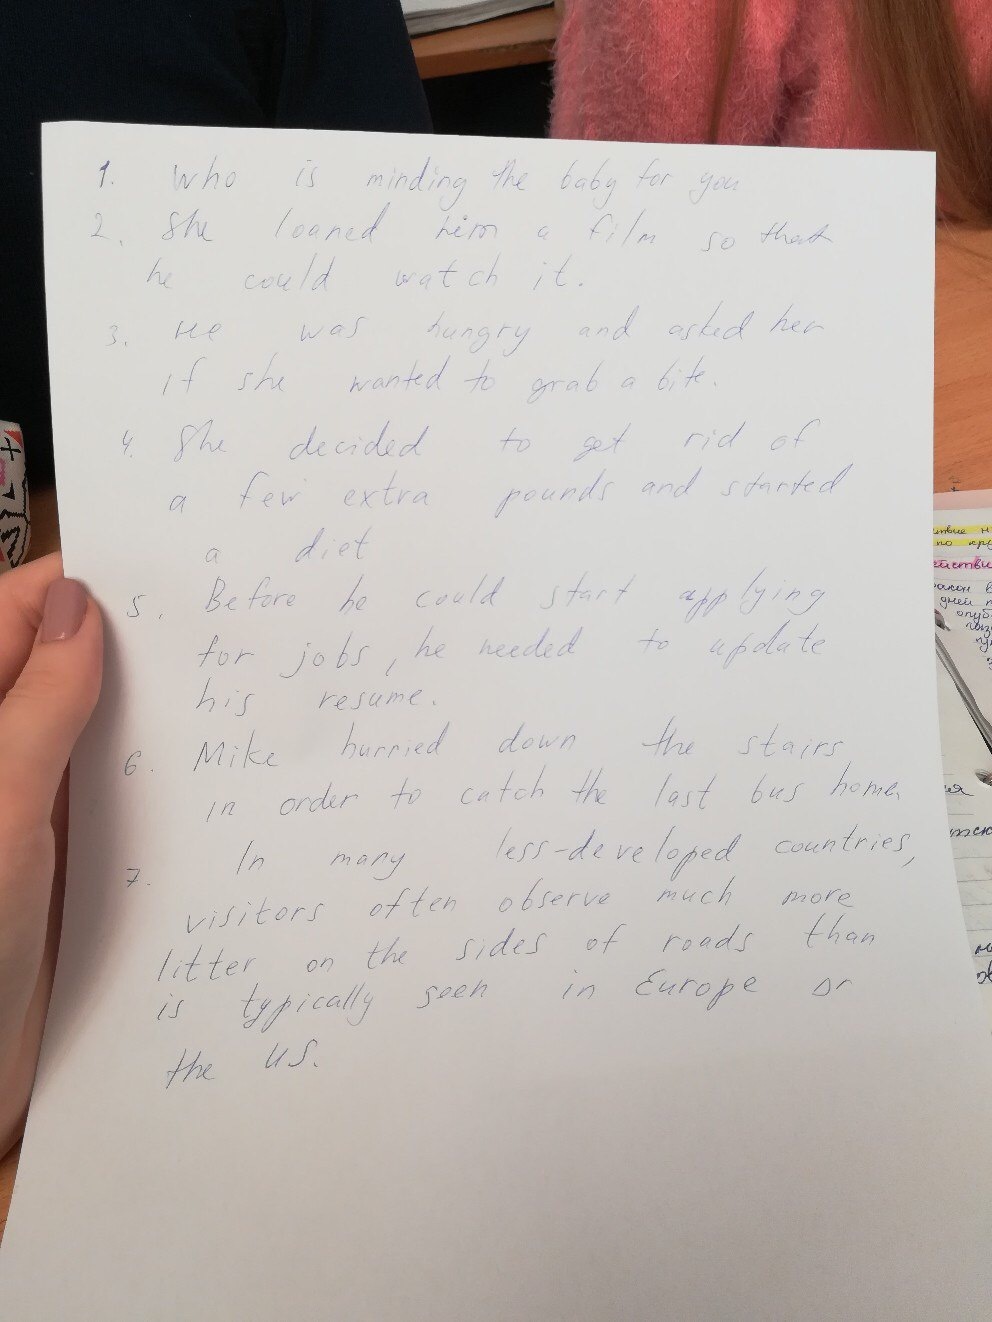 1. Who is minding the baby for you
2. She loaned him a film so that
he could watch it.
3. He was hungry and asked her
if she wanted to grab a bite.
4. She decided to get rid of
a few extra pounds and started
a diet
5. Before he could start applying
for jobs, he needed to update
his resume.
6. Mike hurried down the stairs
in order to catch the last bus home.
7. In many less-developed countries,
visitors often observe much more
litter on the sides of roads than
is typically seen in Europe or
the US.
по
дней